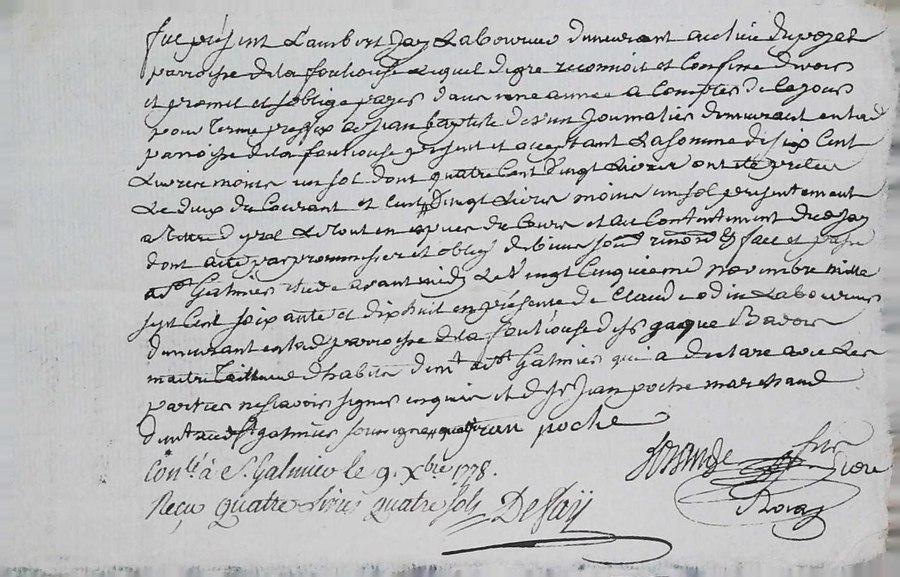 fut présent Lambert Jay Laboureur demeurant au lieu du pozet
parroisse de la fouliouse Lequel de gre reconnoit et Confesse devoir
et promet et s'oblige payer dans une année a Compter de Ce jour
pour terme preffix a Jean baptiste journalier demeurant en lad
parroisse de la fouliouse présent et acceptant La somme de six Cent
Livres moins un sol dont quatre Cent vingt Livres ont
Le deux du Courant et Cent vingt Livres moins un sol présentement
Le tout en espèces du Cours et au Contentement dud Jay
dont acte par promesses et oblig de biens soum renon et fait et passé
a St Galmier étude avant midy Le vingt Cinquieme novembre mille
sept Cent soixante et dix huit en présence de Claude odin Laboureur
demeurant en lad parroisse de la fouliouse de Sr Badoir
maitre Tailleur d'habits demt a St Galmier qui a declaré avec Les
parties ne scavoir signer enquis et de Sr Jean poche marchand
demt aud St galmier soussigné Jean poche
Conlé à St Galmier le 9 Xbre 1778.
Reçu quatre Livres quatre sols